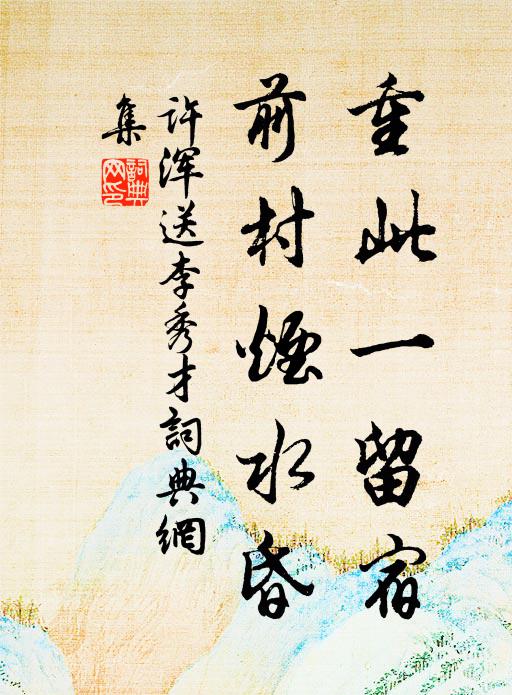 重此一留宿
前村煙水昏
许浑送李秀才詞典網
集
詞典网印